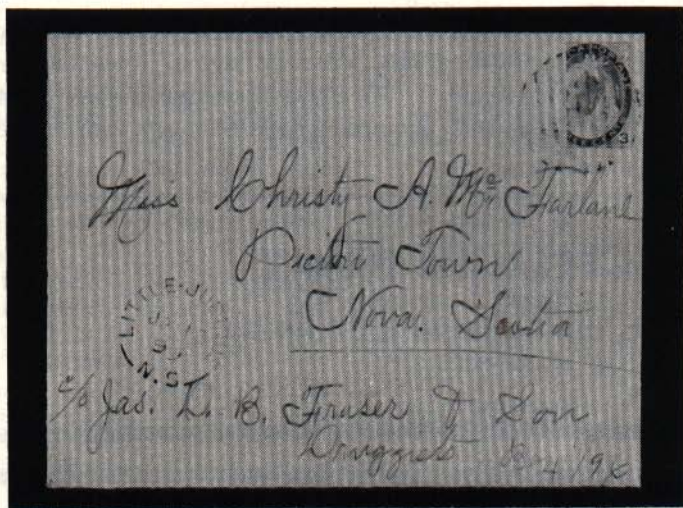 Miss Christy A. Mc Farlane
Pictou Town
Nova. Scotia
LITTLE
N.S
c/o Jas. L. B. Fraser & Son
Druggists Box 19
3